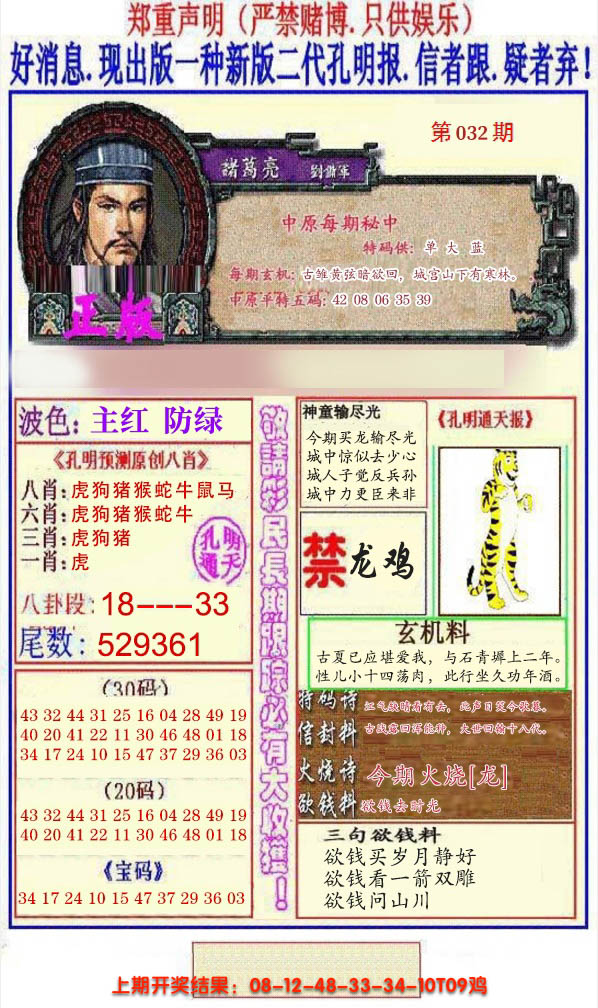 郑重声明（严禁赌博.只供娱乐）
好消息.现出版一种新版二代孔明报.信者跟.疑者弃!
第032期
諸葛亮 劉備軍
中原每期秘中
特码供：单 大 蓝
每期玄机：古雏黄弦暗欲回，城宫山下有寒林。
中原平特五码：42 08 06 35 39
正版
波色：主红 防绿
《孔明预测原创八肖》
八肖：虎狗猪猴蛇牛鼠马
六肖：虎狗猪猴蛇牛
三肖：虎狗猪
一肖：虎
孔明
通天
八卦段：18---33
尾数：529361
(30码)
43 32 44 31 25 16 04 28 49 19
40 20 41 22 11 30 46 48 01 18
34 17 24 10 15 47 37 29 36 03
(20码)
43 32 44 31 25 16 04 28 49 19
40 20 41 22 11 30 46 48 01 18
《宝码》
34 17 24 10 15 47 37 29 36 03
敬請彩民長期跟踪必有大收獲！
神童输尽光
今期买龙输尽光
城中惊似去少心
城人子觉反兵孙
城中力更臣来非
《孔明通天报》
禁 龙鸡
玄机料
古夏已应堪爱我，与石青墀上二年。
性儿小十四荡肉，此行坐久功年酒。
特码诗
信封料
火烧诗 今期火烧[龙]
欲钱料 欲钱去时光
三句欲钱料
欲钱买岁月静好
欲钱看一箭双雕
欲钱问山川
上期开奖结果：08-12-48-33-34-10T09鸡